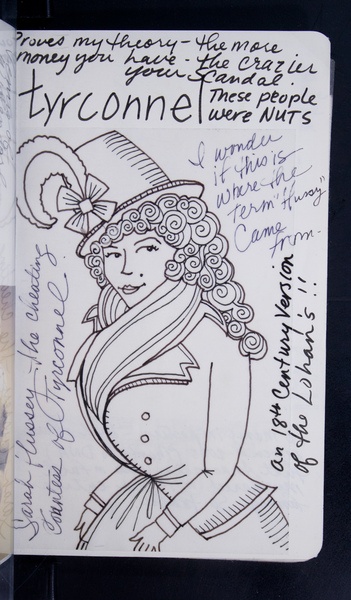 Proves my theory - the more
money you have - the crazier
your scandal.
tyrconnel
These people
were NUTS
I wonder
if this is
where the
term "Hussy"
came
from.
an 18th Century Version
of the Lohan's!!
Sarah Hussey - the cheating
Countess of Tyrconnel.